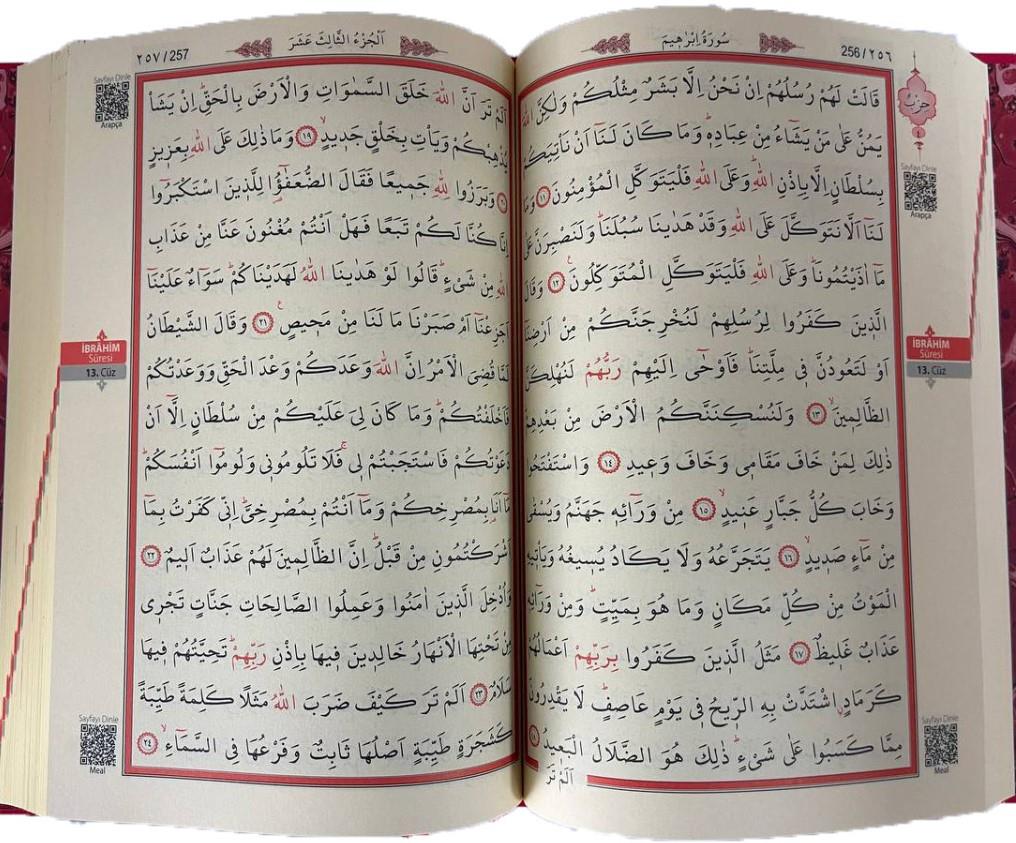 سُورَةُ اِبْرٰهِيمَ
256 / ٢٥٦
حِزْبُ
٤
قَالَتْ لَهُمْ رُسُلُهُمْ اِنْ نَحْنُ اِلَّا بَشَرٌ مِثْلُكُمْ وَلٰكِنَّ اللّٰهَ
يَمُنُّ عَلٰى مَنْ يَشَٓاءُ مِنْ عِبَادِه۪ۜ وَمَا كَانَ لَنَٓا اَنْ نَأْتِيَكُمْ
بِسُلْطَانٍ اِلَّا بِاِذْنِ اللّٰهِۜ وَعَلَى اللّٰهِ فَلْيَتَوَكَّلِ الْمُؤْمِنُونَ ﴿١١﴾ وَمَا
لَنَٓا اَلَّا نَتَوَكَّلَ عَلَى اللّٰهِ وَقَدْ هَدٰينَا سُبُلَنَاۜ وَلَنَصْبِرَنَّ عَلٰى
مَٓا اٰذَيْتُمُونَاۜ وَعَلَى اللّٰهِ فَلْيَتَوَكَّلِ الْمُتَوَكِّلُونَ۟ ﴿١٢﴾ وَقَالَ
الَّذ۪ينَ كَفَرُوا لِرُسُلِهِمْ لَنُخْرِجَنَّكُمْ مِنْ اَرْضِنَٓا
اَوْ لَتَعُودُنَّ ف۪ي مِلَّتِنَاۜ فَاَوْحٰٓى اِلَيْهِمْ رَبُّهُمْ لَنُهْلِكَنَّ
الظَّالِم۪ينَۙ ﴿١٣﴾ وَلَنُسْكِنَنَّكُمُ الْاَرْضَ مِنْ بَعْدِهِمْۜ
ذٰلِكَ لِمَنْ خَافَ مَقَام۪ي وَخَافَ وَع۪يدِ ﴿١٤﴾ وَاسْتَفْتَحُوا
وَخَابَ كُلُّ جَبَّارٍ عَن۪يدٍۙ ﴿١٥﴾ مِنْ وَرَٓائِه۪ جَهَنَّمُ وَيُسْقٰى
مِنْ مَٓاءٍ صَد۪يدٍۙ ﴿١٦﴾ يَتَجَرَّعُهُ وَلَا يَكَادُ يُس۪يغُهُ وَيَأْت۪يهِ
الْمَوْتُ مِنْ كُلِّ مَكَانٍ وَمَا هُوَ بِمَيِّتٍۜ وَمِنْ وَرَٓائِه۪
عَذَابٌ غَل۪يظٌ ﴿١٧﴾ مَثَلُ الَّذ۪ينَ كَفَرُوا بِرَبِّهِمْ اَعْمَالُهُمْ
كَرَمَادٍۨ اشْتَدَّتْ بِهِ الرّ۪يحُ ف۪ي يَوْمٍ عَاصِفٍۜ لَا يَقْدِرُونَ
مِمَّا كَسَبُوا عَلٰى شَيْءٍۜ ذٰلِكَ هُوَ الضَّلَالُ الْبَع۪يدُ ﴿١٨﴾
اَلَمْ تَرَ
Sayfayı Dinle
Arapça
İBRÂHİM
Sûresi
13. Cüz
Sayfayı Dinle
Meal
اَلْجُزْءُ الثَّالِثَ عَشَرَ
٢٥٧ / 257
اَلَمْ تَرَ اَنَّ اللّٰهَ خَلَقَ السَّمٰوَاتِ وَالْاَرْضَ بِالْحَقِّۜ اِنْ يَشَأْ
يُذْهِبْكُمْ وَيَأْتِ بِخَلْقٍ جَد۪يدٍۙ ﴿١٩﴾ وَمَا ذٰلِكَ عَلَى اللّٰهِ بِعَز۪يزٍ
﴿٢٠﴾ وَبَرَزُوا لِلّٰهِ جَم۪يعًا فَقَالَ الضُّعَفٰٓؤُ۬ا لِلَّذ۪ينَ اسْتَكْبَرُٓوا
اِنَّا كُنَّا لَكُمْ تَبَعًا فَهَلْ اَنْتُمْ مُغْنُونَ عَنَّا مِنْ عَذَابِ
اللّٰهِ مِنْ شَيْءٍۜ قَالُوا لَوْ هَدٰينَا اللّٰهُ لَهَدَيْنَاكُمْۜ سَوَٓاءٌ عَلَيْنَٓا
اَجَزِعْنَٓا اَمْ صَبَرْنَا مَا لَنَا مِنْ مَح۪يصٍ۟ ﴿٢١﴾ وَقَالَ الشَّيْطَانُ
لَمَّا قُضِيَ الْاَمْرُ اِنَّ اللّٰهَ وَعَدَكُمْ وَعْدَ الْحَقِّ وَوَعَدْتُكُمْ
فَاَخْلَفْتُكُمْۜ وَمَا كَانَ لِيَ عَلَيْكُمْ مِنْ سُلْطَانٍ اِلَّٓا اَنْ
دَعَوْتُكُمْ فَاسْتَجَبْتُمْ ل۪يۚ فَلَا تَلُومُون۪ي وَلُومُٓوا اَنْفُسَكُمْۜ
مَٓا اَنَا۬ بِمُصْرِخِكُمْ وَمَٓا اَنْتُمْ بِمُصْرِخِيَّۜ اِنّ۪ي كَفَرْتُ بِمَٓا
اَشْرَكْتُمُونِ مِنْ قَبْلُۜ اِنَّ الظَّالِم۪ينَ لَهُمْ عَذَابٌ اَل۪يمٌ ﴿٢٢﴾
وَاُدْخِلَ الَّذ۪ينَ اٰمَنُوا وَعَمِلُوا الصَّالِحَاتِ جَنَّاتٍ تَجْر۪ي
مِنْ تَحْتِهَا الْاَنْهَارُ خَالِد۪ينَ ف۪يهَا بِاِذْنِ رَبِّهِمْۜ تَحِيَّتُهُمْ ف۪يهَا
سَلَامٌ ﴿٢٣﴾ اَلَمْ تَرَ كَيْفَ ضَرَبَ اللّٰهُ مَثَلًا كَلِمَةً طَيِّبَةً
كَشَجَرَةٍ طَيِّبَةٍ اَصْلُهَا ثَابِتٌ وَفَرْعُهَا فِي السَّمَٓاءِۙ ﴿٢٤﴾
Sayfayı Dinle
Arapça
İBRÂHİM
Sûresi
13. Cüz
Sayfayı Dinle
Meal